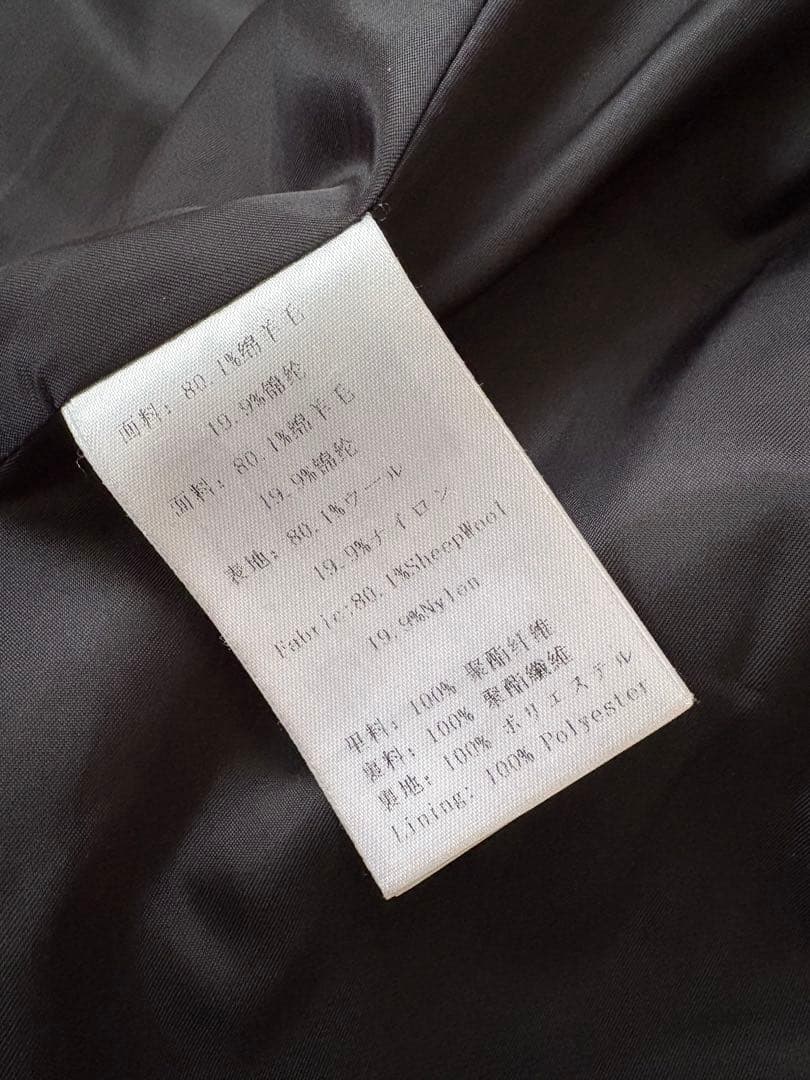 面料: 80.1%绵羊毛
19.9%锦纶
面料: 80.1%綿羊毛
19.9%錦綸
表地: 80.1%ウール
19.9%ナイロン
Fabric:80.1%SheepWool
19.9%Nylon
里料: 100% 聚酯纤维
裏料: 100% 聚酯纖維
裏地: 100% ポリエステル
Lining: 100% Polyester